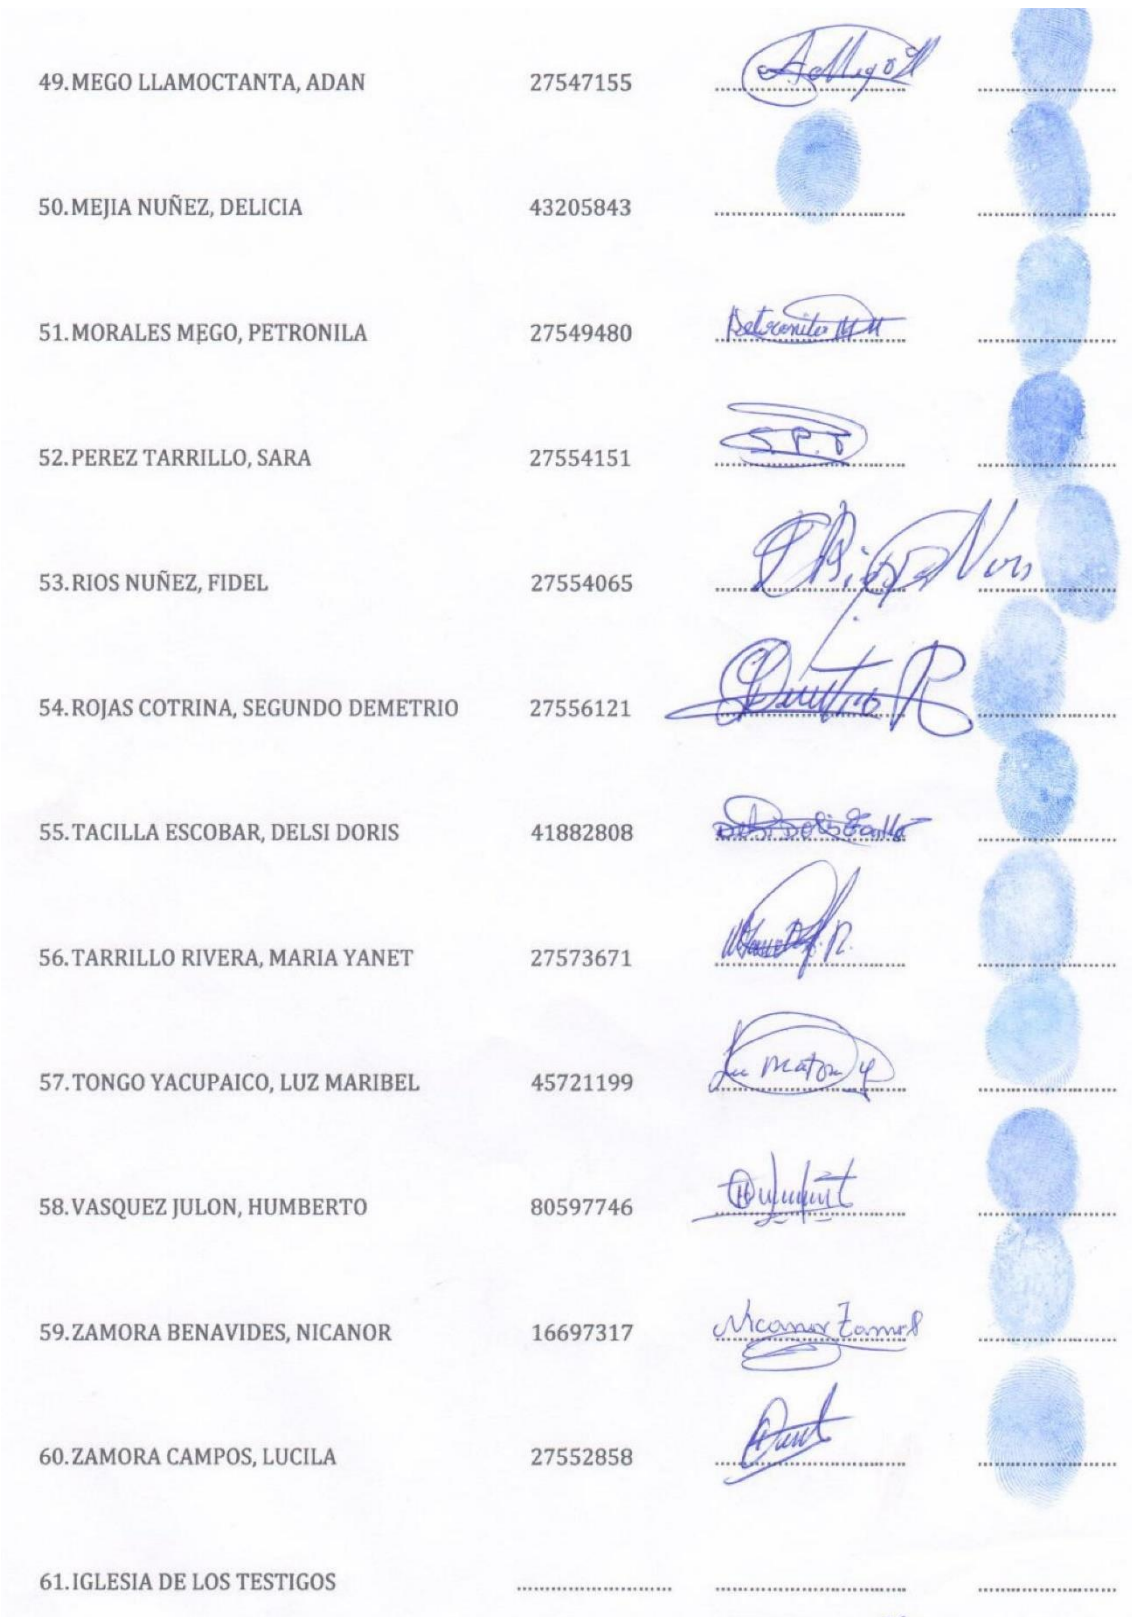 49. MEGO LLAMOCTANTA, ADAN 27547155 A. Mego Ll
50. MEJIA NUÑEZ, DELICIA 43205843
51. MORALES MEGO, PETRONILA 27549480 Petronila M M
52. PEREZ TARRILLO, SARA 27554151 S.P.T
53. RIOS NUÑEZ, FIDEL 27554065
54. ROJAS COTRINA, SEGUNDO DEMETRIO 27556121
55. TACILLA ESCOBAR, DELSI DORIS 41882808
56. TARRILLO RIVERA, MARIA YANET 27573671
57. TONGO YACUPAICO, LUZ MARIBEL 45721199
58. VASQUEZ JULON, HUMBERTO 80597746
59. ZAMORA BENAVIDES, NICANOR 16697317 Nicanor Zamor
60. ZAMORA CAMPOS, LUCILA 27552858
61. IGLESIA DE LOS TESTIGOS